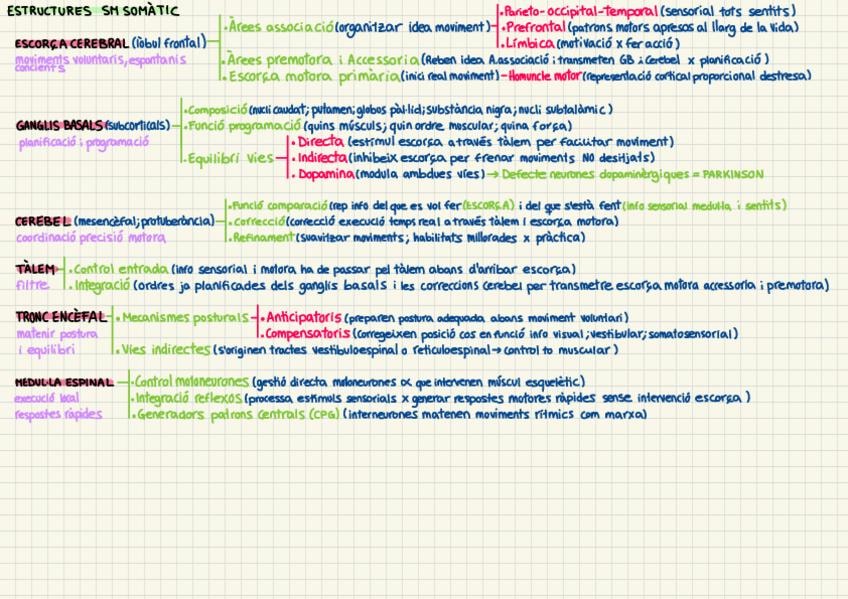 ESTRUCTURES SM SOMÀTIC
ESCORÇA CEREBRAL (lòbul frontal)
moviments voluntaris, espontanis
concients
· Àrees associació (organitzar idea moviment)
· Parieto-occipital-Temporal (sensorial tots sentits)
· Prefrontal (patrons motors apresos al llarg de la vida)
· Límbica (motivació x fer acció)
· Àrees premotora i Accessoria (Reben idea A.associació i transmeten GB i Cerebel x planificació)
· Escorça motora primària (inici real moviment) – Homuncle motor (representació cortical proporcional destresa)
GANGLIS BASALS (subcorticals)
planificació i programació
· Composició (nucli caudat; putamen; globos pàl·lid; substància nigra; nucli subtalàmic)
· Funció programació (quins músculs; quin ordre muscular; quina força)
· Equilibri vies
· Directa (estímul escorça através tàlem per facilitar moviment)
· Indirecta (inhibeix escorça per frenar moviments NO desitjats)
· Dopamina (modula ambdues vies) → Defecte neurones dopaminèrgiques = PARKINSON
CEREBEL (mesencèfal; protuberància)
coordinació precisió motora
· Funció comparació (rep info del que es vol fer (ESCORÇA) i del que s'està fent (info sensorial medul·la i sentits)
· Correcció (correcció execució temps real a través tàlem i escorça motora)
· Refinament (suavitzar moviments; habilitats millorades x pràctica)
TÀLEM
filtre
· Control entrada (info sensorial i motora ha de passar pel tàlem abans d'arribar escorça)
· Integració (ordres ja planificades dels ganglis basals i les correccions cerebel per transmetre escorça motora accessoria i premotora)
TRONC ENCÈFAL
matenir postura
i equilibri
· Mecanismes posturals
· Anticipatoris (preparen postura adequada abans moviment voluntari)
· Compensatoris (corregeixen posició cos en funció info visual; vestibular; somatosensorial)
· Vies indirectes (s'originen tractes vestibuloespinal o reticuloespinal → control to muscular)
MEDUL·LA ESPINAL
execució local
respostes ràpides
· Control motoneurones (gestió directa motoneurones α que intervenen múscul esquelètic)
· Integració reflexos (processa estímuls sensorials x generar respostes motores ràpides sense intervenció escorça)
· Generadors patrons centrals (CPG) (interneurones matenen moviments rítmics com marxa)